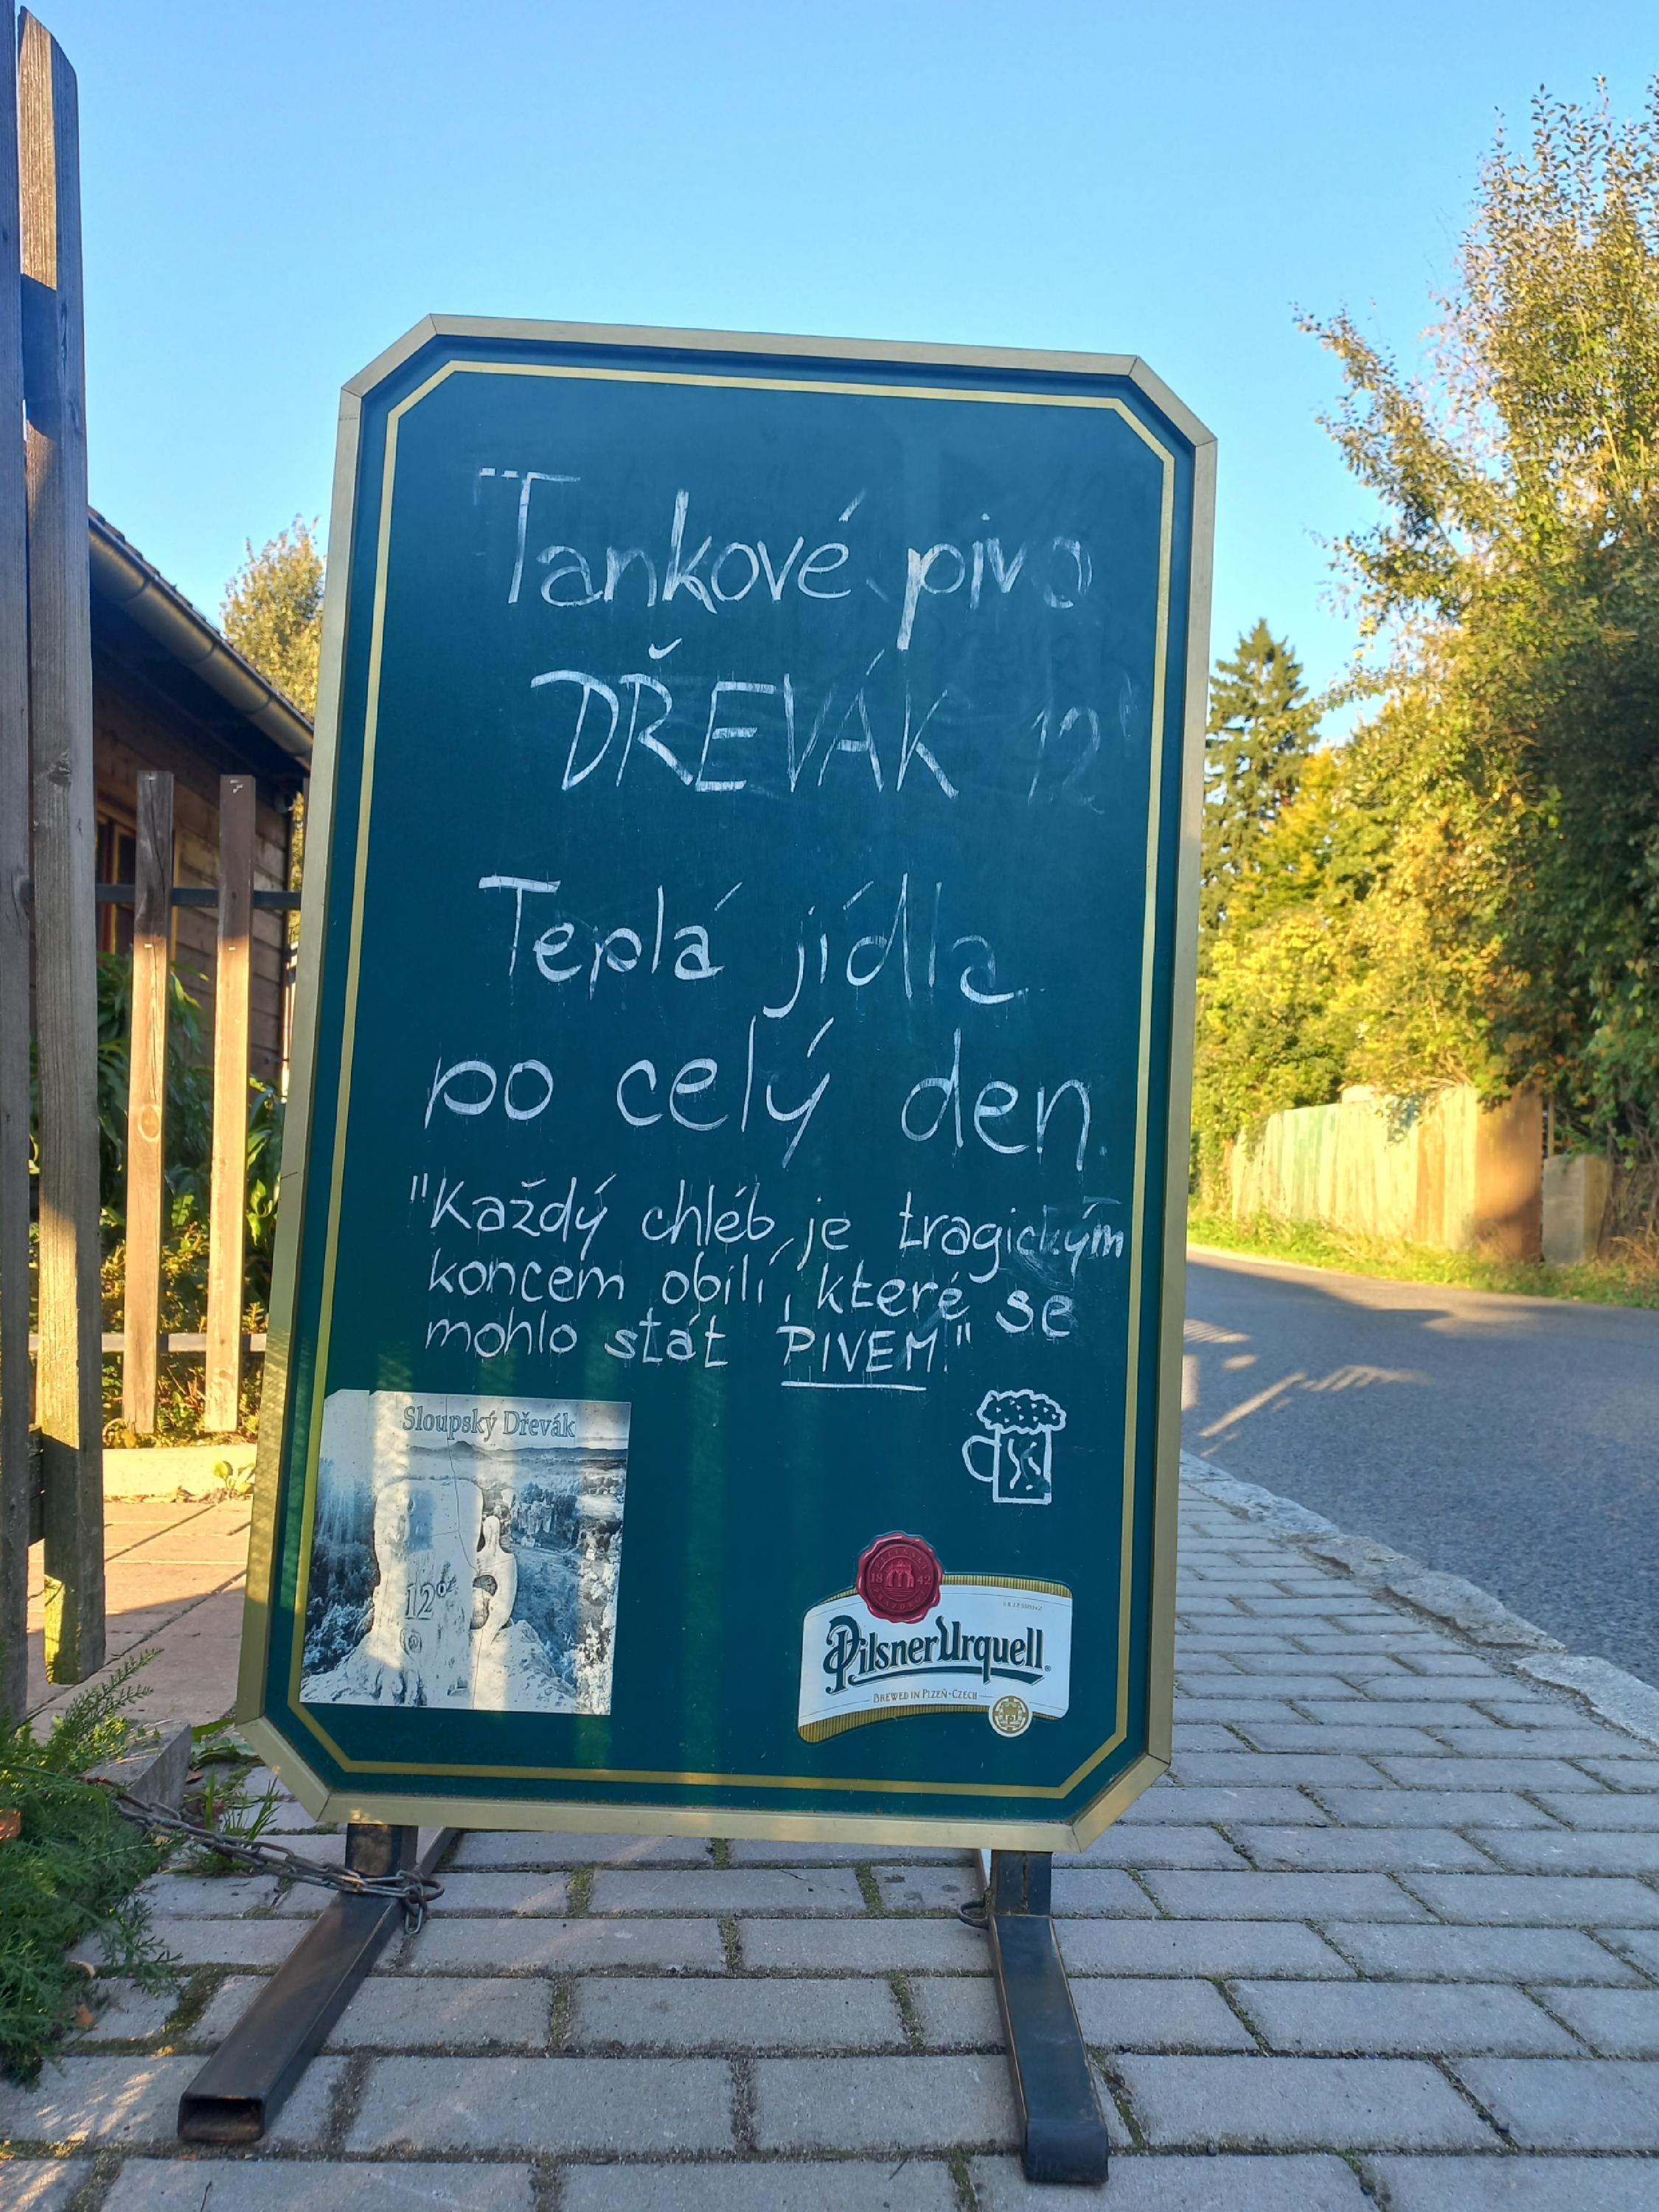 "Tankové pivo
DŘEVÁK 12°
Teplá jídla
po celý den.
"Každý chléb je tragickým
koncem obilí, které se
mohlo stát PIVEM."
Sloupský Dřevák
12°
18 42
Pilsner Urquell
BREWED IN PLZEŇ · CZECH